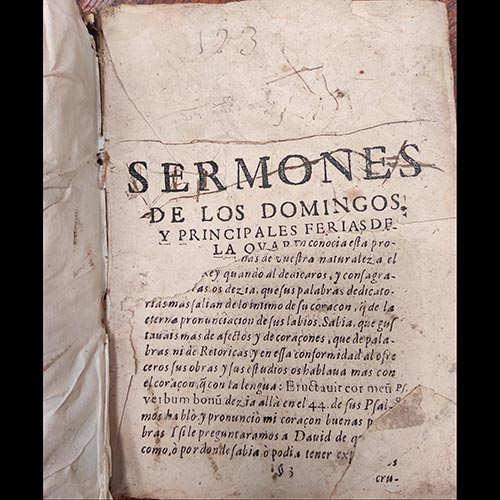 123
SERMONES
DE LOS DOMINGOS,
Y PRINCIPALES FERIAS DE
LA QVAR conocia esta pro-
nas de vuestra naturaleza el
Rey quando al dedicaros, y consagra-
las os dezia, que sus palabras dedicato-
rias mas salian de lo intimo de su coraçon, q̃ de la
eterna pronunciacion de sus labios. Sabia, que gus
tauais mas de afectos y de coraçones, que de pala-
bras ni de Retoricas y en essa conformidad al ofre
ceros sus obras y sus estudios os hablaua mas con
el coraçon, q̃ con la lengua: Eructauit cor meũ Ps.
verbum bonũ dezia allà en el 44. de sus Psal-
mos habló y pronunciò mi coraçon buenas p
bras I si le preguntaramos a Dauid de q
como, ò por donde sabia ò podia tener exp
§ 3
cru-